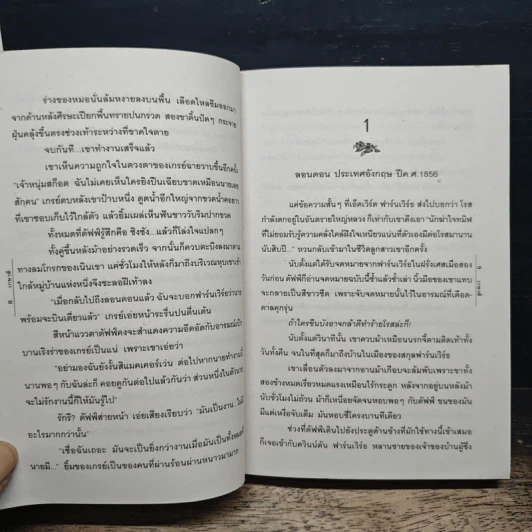 ร่างของหมอนั่นล้มหงายลงบนพื้น เลือดไหลซึมออกมา
จากด้านหลังศีรษะเปียกพื้นทรายปนกรวด สองขาดิ้นปัดๆ กระจาย
ฝุ่นคลุ้งขึ้นตรงช่วงเท้าระหว่างที่ขาดใจตาย
จบกันที...เขาทำงานเสร็จแล้ว
เขาเห็นความถูกใจในดวงตาของเกรย์ฉายวาบขึ้นอีกครั้ง
"เจ้าหนุ่มสก็อต ฉันไม่เคยเห็นใครยิงปืนเฉียบขาดเหมือนนายเลย
สักคน" เกรย์ตบหลังเขาป้าบหนึ่ง ดูดน้ำอีกใหญ่จากขวดน้ำ
ที่เขาชอบเก็บไว้ใกล้ตัว แล้วยิ้มเผล่เห็นฟันขาววับริมปากขวด
ทั้งหมดที่ดัฟฟ์รู้สึกคือ ชิงชัง...แล้วก็โล่งใจแปลกๆ
ทั้งคู่ขึ้นหลังม้าอย่างรวดเร็ว จากนั้นก็ควบตะบึงลงมา
ทางลมโกรกของเนินเขา แค่ชั่วโมงให้หลังก็มาถึงบริเวณหุบเขา
ใกล้หมู่บ้านแห่งหนึ่งจึงชะลอฝีเท้าลง
"เมื่อกลับไปถึงลอนดอนแล้ว ฉันจะบอกฟาร์นเวิร์ธว่านาย
พร้อมจะบินเดี่ยวแล้ว" เกรย์เอ่ยหน้าระรื่นปนตื่นเต้น
สีหน้าแววตาดัฟฟ์คงจะสำแดงความอึดอัดกับอารมณ์เบิก
บานเริงร่าของเกรย์เป็นแน่ เพราะเขาเอ่ยว่า
"อย่ามองฉันยังงั้นสิแมคเคอร์เวน ต่อไปหากนายทำงานนี้
นานพอๆ กับฉันล่ะก็ คอยดูกันต่อไปแล้วกันว่า ส่วนหนึ่งในตัวนาย
จะไม่รักงานนี้ก็ให้มันรู้ไป"
รักรึ? ดัฟฟ์ส่ายหน้า เอ่ยเสียงเรียบว่า "มันเป็นงาน...ไม่มี
อะไรมากกว่านั้น"
"เชื่อฉันเถอะ มันจะเป็นยิ่งกว่างานเมื่อมันเป็นทั้งหมดที่
นายมี..." ยิ้มของเกรย์เป็นของคนที่ผ่านร้อนผ่านหนาวมามาก
1
ลอนดอน ประเทศอังกฤษ ปีค.ศ.1856
แค่ข้อความสั้นๆ ที่เอ็ดเวิร์ด ฟาร์นเวิร์ธ ส่งไปบอกว่า โรส
กำลังตกอยู่ในอันตรายใหญ่หลวง ก็เท่ากับเขาดึงเอา "นักฆ่าใจทมิฬ
ที่ไม่ยอมรับรู้ความคลั่งไคล้ฝังใจเหนียวแน่นที่ตัวเองมีต่อโรสมานาน
นับสิบปี..." หวนกลับเข้ามาในชีวิตลูกสาวเขาอีกครั้ง
นับตั้งแต่ได้รับจดหมายจากฟาร์นเวิร์ธในฝรั่งเศสเมื่อสอง
วันก่อน ดัฟฟ์ก็อ่านจดหมายฉบับนี้ซ้ำแล้วซ้ำเล่า นิ้วมือของเขาแทบ
จะกลายเป็นสีขาวซีด เพราะจับจดหมายนั้นไว้ในอารมณ์ที่เดือด-
ดาลคุกรุ่น
ถ้าใครขืนบังอาจกล้าดีทำร้ายโรสล่ะก็!
นับตั้งแต่วินาทีนั้น เขาควบม้าเหมือนนรกจี้ตามติดเท้าทั้ง
วันทั้งคืน จนในที่สุดก็มาถึงบ้านในเมืองของสกุลฟาร์นเวิร์ธ
เขาเลื่อนตัวลงมาจากอานม้าเกือบจะล้มพับเพราะขาทั้ง
สองข้างหมดเรี่ยวหมดแรงเหมือนไร้กระดูก หลังจากอยู่บนหลังม้า
นับชั่วโมงไม่ถ้วน ม้าก็เหนื่อยจัดจนหอบพอๆ กับดัฟฟ์ ขนของมัน
มีแต่เหงื่อจับเต็ม มันหอบซี่โครงบานทีเดียว
ช่วงที่ดัฟฟ์เดินไปยังประตูด้านข้างที่มักใช้ทางนี้เข้าเสมอ
ก็เจอเข้ากับควินน์ตัน ฟาร์นเวิร์ธ หลานชายของเจ้าของบ้านผู้ซึ่ง